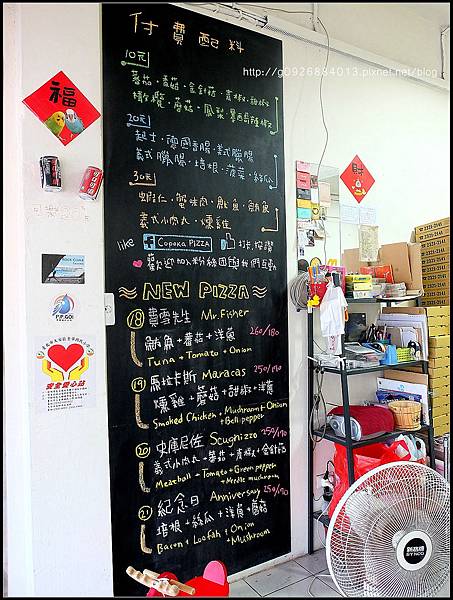 付費配料
http://g0926884013.pixnet.net/blog
10元
蕃茄・香菇・金針菇・青椒・甜椒
橄欖・蘑菇・鳳梨・墨西哥辣椒
20元
起士・德國香腸・美式臘腸
義式臘腸・培根・菠菜・絲瓜
30元
蝦仁・蟹味肉・魷魚・鮪魚
義式小肉丸・燻雞
like f Copaka PIZZA 打卡、按讚
歡迎加入粉絲團跟我們互動
NEW PIZZA
18 費雪先生 Mr. Fisher
鮪魚+蕃茄+洋蔥 260/180
Tuna + Tomato + Onion
19 馬拉卡斯 Maracas 250/170
燻雞+蘑菇+甜椒+洋蔥
Smoked Chicken + Mushroom + Onion
+ Bell pepper
20 史庫尼佐 Scugnizzo 250/170
義式小肉丸+蕃茄+青椒+金針菇
Meatball + Tomato + Green pepper
+ Needle mushroom
21 紀念日 Anniversary 250/170
培根+絲瓜+洋蔥+蘑菇
Bacon + Loofah + Onion
+ Mushroom
福
財
安全愛心站